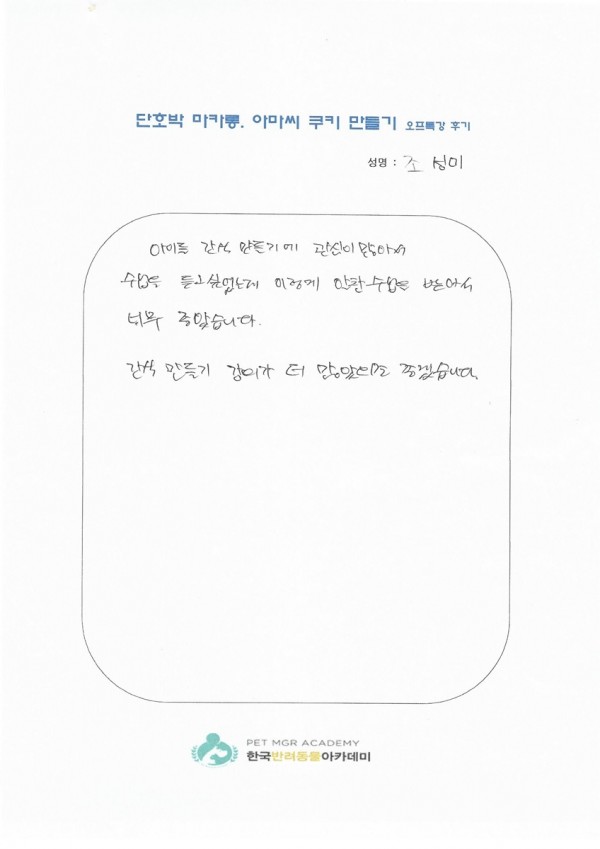 단호박 마카롱. 아마씨 쿠키 만들기 오프특강 후기
성명 : 조 성미
아이들 간식 만들기에 관심이 많아서
수업을 듣고싶었는데 이렇게 알찬 수업을 받아서
너무 좋았습니다.
간식 만들기 강의가 더 많았으면 좋겠습니다.
PET MGR ACADEMY
한국반려동물아카데미